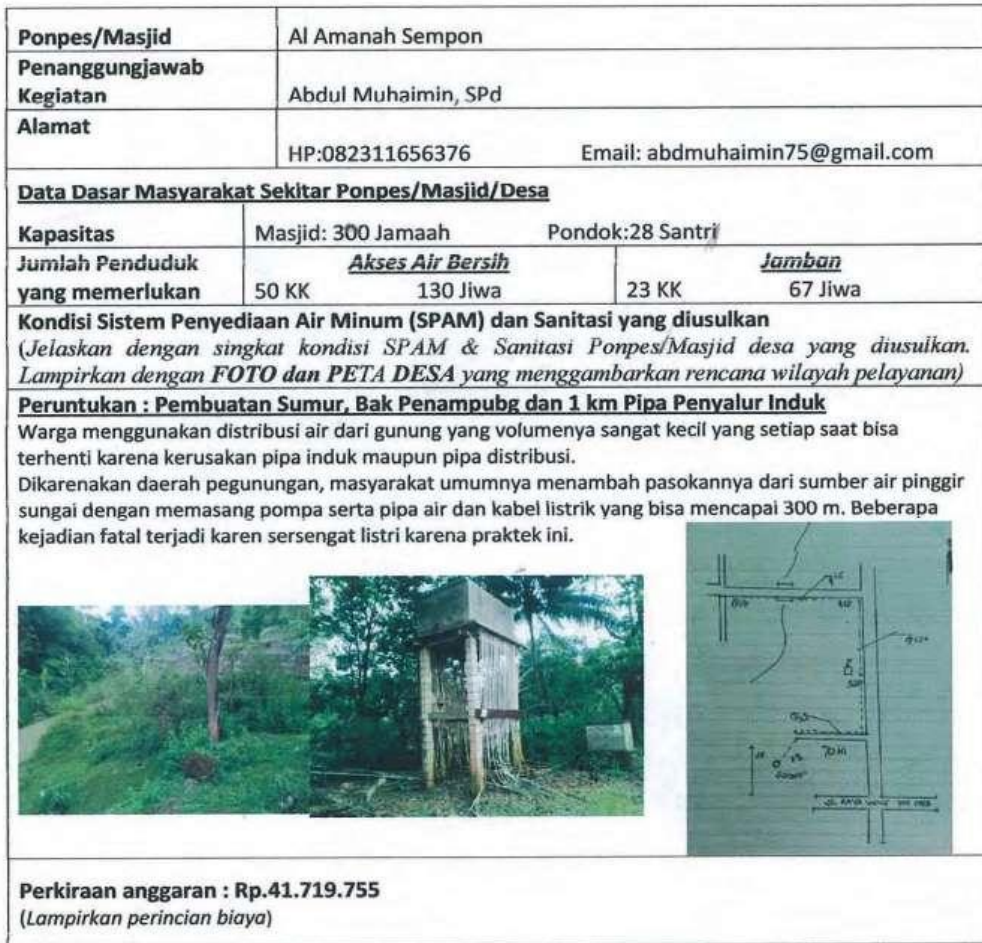 Ponpes/Masjid Al Amanah Sempon
Penanggungjawab
Kegiatan Abdul Muhaimin, SPd
Alamat
HP:082311656376 Email: abdmuhaimin75@gmail.com
Data Dasar Masyarakat Sekitar Ponpes/Masjid/Desa
Kapasitas Masjid: 300 Jamaah Pondok:28 Santri
Jumlah Penduduk Akses Air Bersih Jamban
yang memerlukan 50 KK 130 Jiwa 23 KK 67 Jiwa
Kondisi Sistem Penyediaan Air Minum (SPAM) dan Sanitasi yang diusulkan
(Jelaskan dengan singkat kondisi SPAM & Sanitasi Ponpes/Masjid desa yang diusulkan.
Lampirkan dengan FOTO dan PETA DESA yang menggambarkan rencana wilayah pelayanan)
Peruntukan : Pembuatan Sumur, Bak Penampubg dan 1 km Pipa Penyalur Induk
Warga menggunakan distribusi air dari gunung yang volumenya sangat kecil yang setiap saat bisa
terhenti karena kerusakan pipa induk maupun pipa distribusi.
Dikarenakan daerah pegunungan, masyarakat umumnya menambah pasokannya dari sumber air pinggir
sungai dengan memasang pompa serta pipa air dan kabel listrik yang bisa mencapai 300 m. Beberapa
kejadian fatal terjadi karen sersengat listri karena praktek ini.
Perkiraan anggaran : Rp.41.719.755
(Lampirkan perincian biaya)